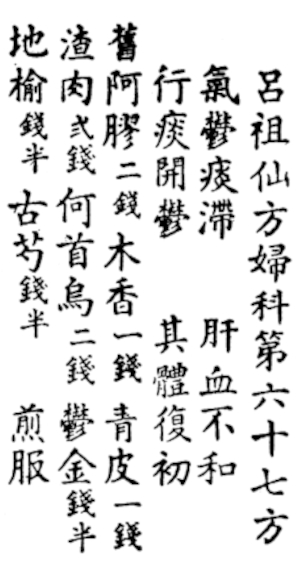 呂祖仙方婦科第六十七方
氣鬱痰滯 肝血不和
行痰開鬱 其體復初
舊阿膠二錢 木香一錢 青皮一錢
渣肉弍錢 何首烏二錢 鬱金錢半
地榆錢半 古芍錢半 煎服